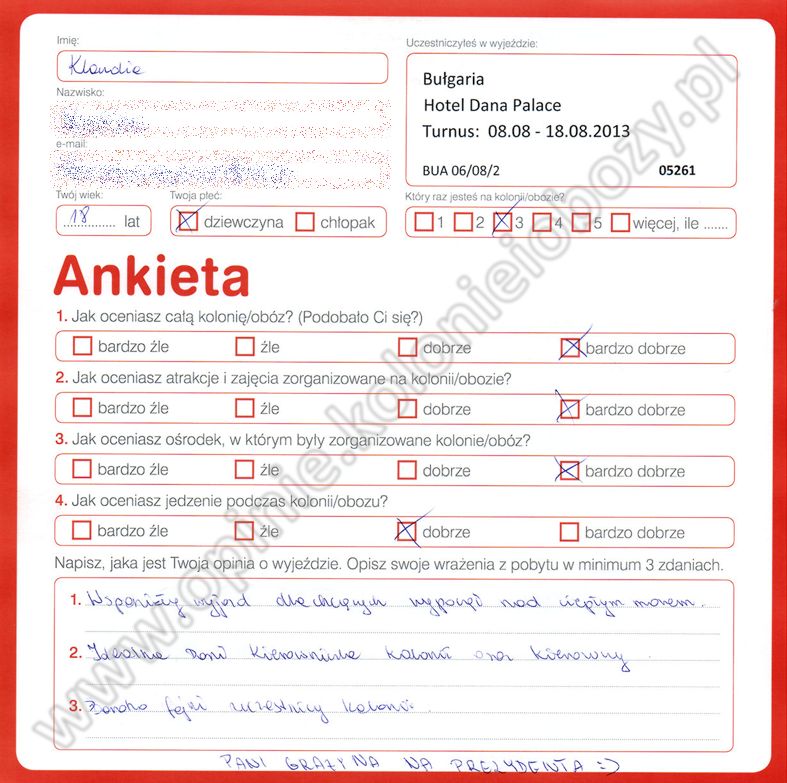 Imię:
Klaudia
Uczestniczyłeś w wyjeździe:
Bułgaria
Hotel Dana Palace
Turnus: 08.08 - 18.08.2013
BUA 06/08/2 05261
Nazwisko:
e-mail:
Twój wiek:
18 lat
Twoja płeć:
dziewczyna chłopak
Który raz jesteś na kolonii/obozie?
1 2 3 4 5 więcej, ile .......
Ankieta
1. Jak oceniasz całą kolonię/obóz? (Podobało Ci się?)
bardzo źle źle dobrze bardzo dobrze
2. Jak oceniasz atrakcje i zajęcia zorganizowane na kolonii/obozie?
bardzo źle źle dobrze bardzo dobrze
3. Jak oceniasz ośrodek, w którym były zorganizowane kolonie/obóz?
bardzo źle źle dobrze bardzo dobrze
4. Jak oceniasz jedzenie podczas kolonii/obozu?
bardzo źle źle dobrze bardzo dobrze
Napisz, jaka jest Twoja opinia o wyjeździe. Opisz swoje wrażenia z pobytu w minimum 3 zdaniach.
1. Wspaniały wyjazd dla chcących wypocząć nad ciepłym morzem.
2. Idealna Pani Kierowniczka kolonii oraz
3. Bardzo fajni uczestnicy kolonii.
PANI GRAŻYNA NA PREZYDENTA :)
www.opinie.kolonieiobozy.pl